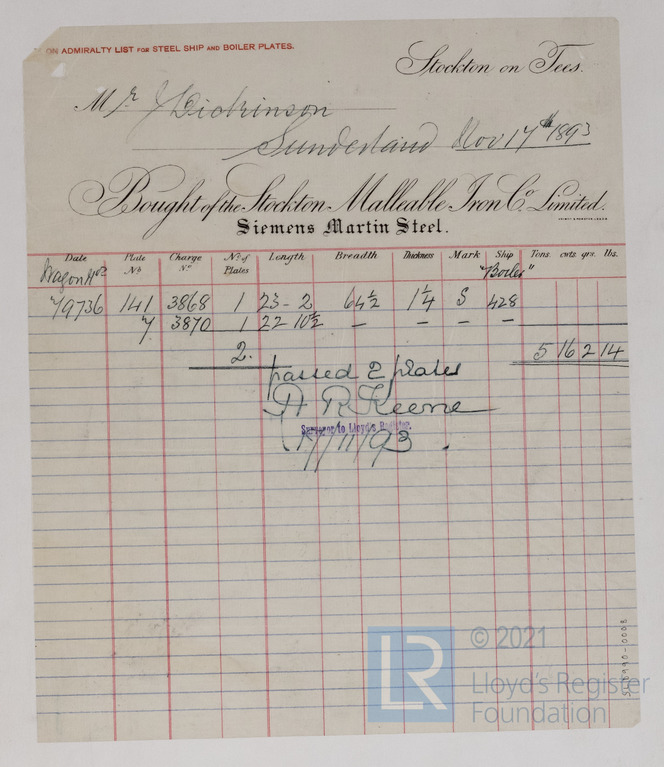 ON ADMIRALTY LIST FOR STEEL SHIP AND BOILER PLATES.
Stockton on Tees.
Mr J Dickinson
Sunderland Nov 17th 1893
Bought of the Stockton Malleable Iron Co. Limited.
Siemens Martin Steel.
Date Plate No Charge No. No. of Plates Length Breadth Thickness Mark Ship Tons cwts. qrs. lbs.
Wagon No "Boiler"
9736 141 3868 1 23-2 64½ 1¼ S 428
3870 1 22 10½ — — — —
2. 5 16 2 14
passed 2 plates
R Keene
Surveyor to Lloyd's Register.
17/11/93.
© 2021
LR
Lloyd's Register
Foundation